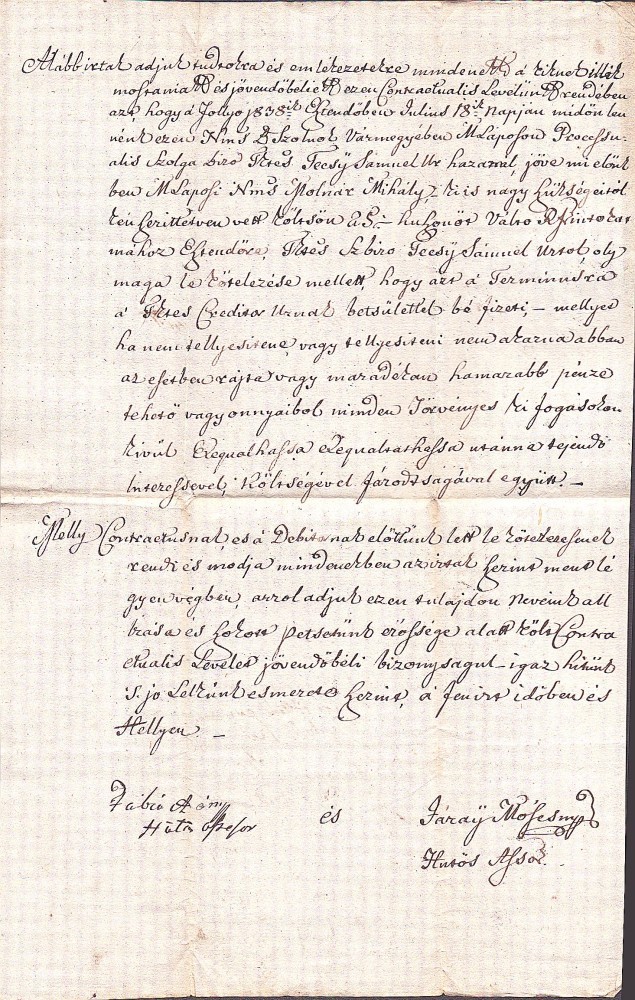 Alább irtak adjuk tudtokra és emlékezetekre mindeneknek a kiknek illik
mostaniaknak és jövendőbélieknek ezen Contractualis Levelünknek rendében
azt, hogy a folyó 1838ik Esztendőben Julius 18ik Napján midőn len
nénk ezen Nms B Szolnok Vármegyében M Láposon Processu-
alis Szolga biro Ttes Tecsy Sámuel Ur hazanál, jöve mi előnk
ben M Laposi Nms Molnár Mihály, ki is nagy szükségeitől
kénszerittetven vett költsön 25 huszonöt Válto Rforintokat
mához Esztendőre, Ttes Szbiro Tecsy Sámuel Urtol, oly
maga le kötelezése mellett, hogy azt a Terminusra
a Ttes Creditor Urnak betsülettel bé fizeti, – mellyet
ha nem tellyesitene, vagy tellyesiteni nem akarna abban
az esetben rajta vagy maradékan hamarabb pénze
tehető vagyonnyaibol minden Törvényes ki fogásokon
kivűl Exequalhassa Exequaltathassa utánna tejendő
Interessével, Költségével Járodtságával együtt. –
Melly Contractusnak es á Debitornak előttünk lett le kötelezesenek
rendi és modja mindenekben az irtak szerint ment lé
gyen végben, arrol adjuk ezen tulajdon Neveink all
irása és szokott petsetünk erőssége alatt költ Contra
ctualis Levelet jövendőbéli bizonysagul – igaz hitünk
's jo Lelkünk esmerete szerint, á fenirt időben és
Hellyen. –
Fábió
és
Járaÿ Móses
Hutös Assor